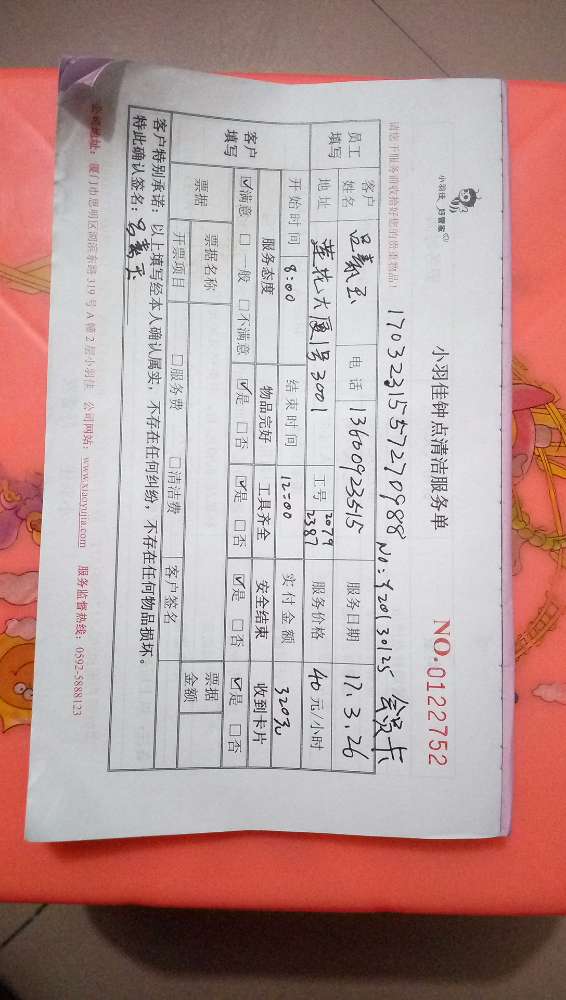 小羽佳 好管家
小羽佳钟点清洁服务单
NO.0122752
请您于服务前收拾好您的贵重物品!
1703231557270988 NO:Y20130125 会员卡
员工填写 客户姓名 吕 玉 电话 13600923515 服务日期 17.3.26
地址 莲花大厦1号3001 工号 2079 2387 服务价格 40元/小时
开始时间 8:00 结束时间 12:00 实付金额 320元
客户填写 服务态度 物品完好 工具齐全 安全结束 收到卡片
☑满意 □一般 □不满意 ☑是 □否 ☑是 □否 ☑是 □否 ☑是 □否
票据 票据名称 票据金额
开票项目 □服务费 □清洁费 客户签名
客户特别承诺:以上填写经本人确认属实,不存在任何纠纷,不存在任何物品损坏。
特此确认签名:吕 玉
公司地址:厦门市思明区湖滨东路319号A幢2层小羽佳 公司网站:www.xiaoyujia.com 服务监督热线:0592-5888123